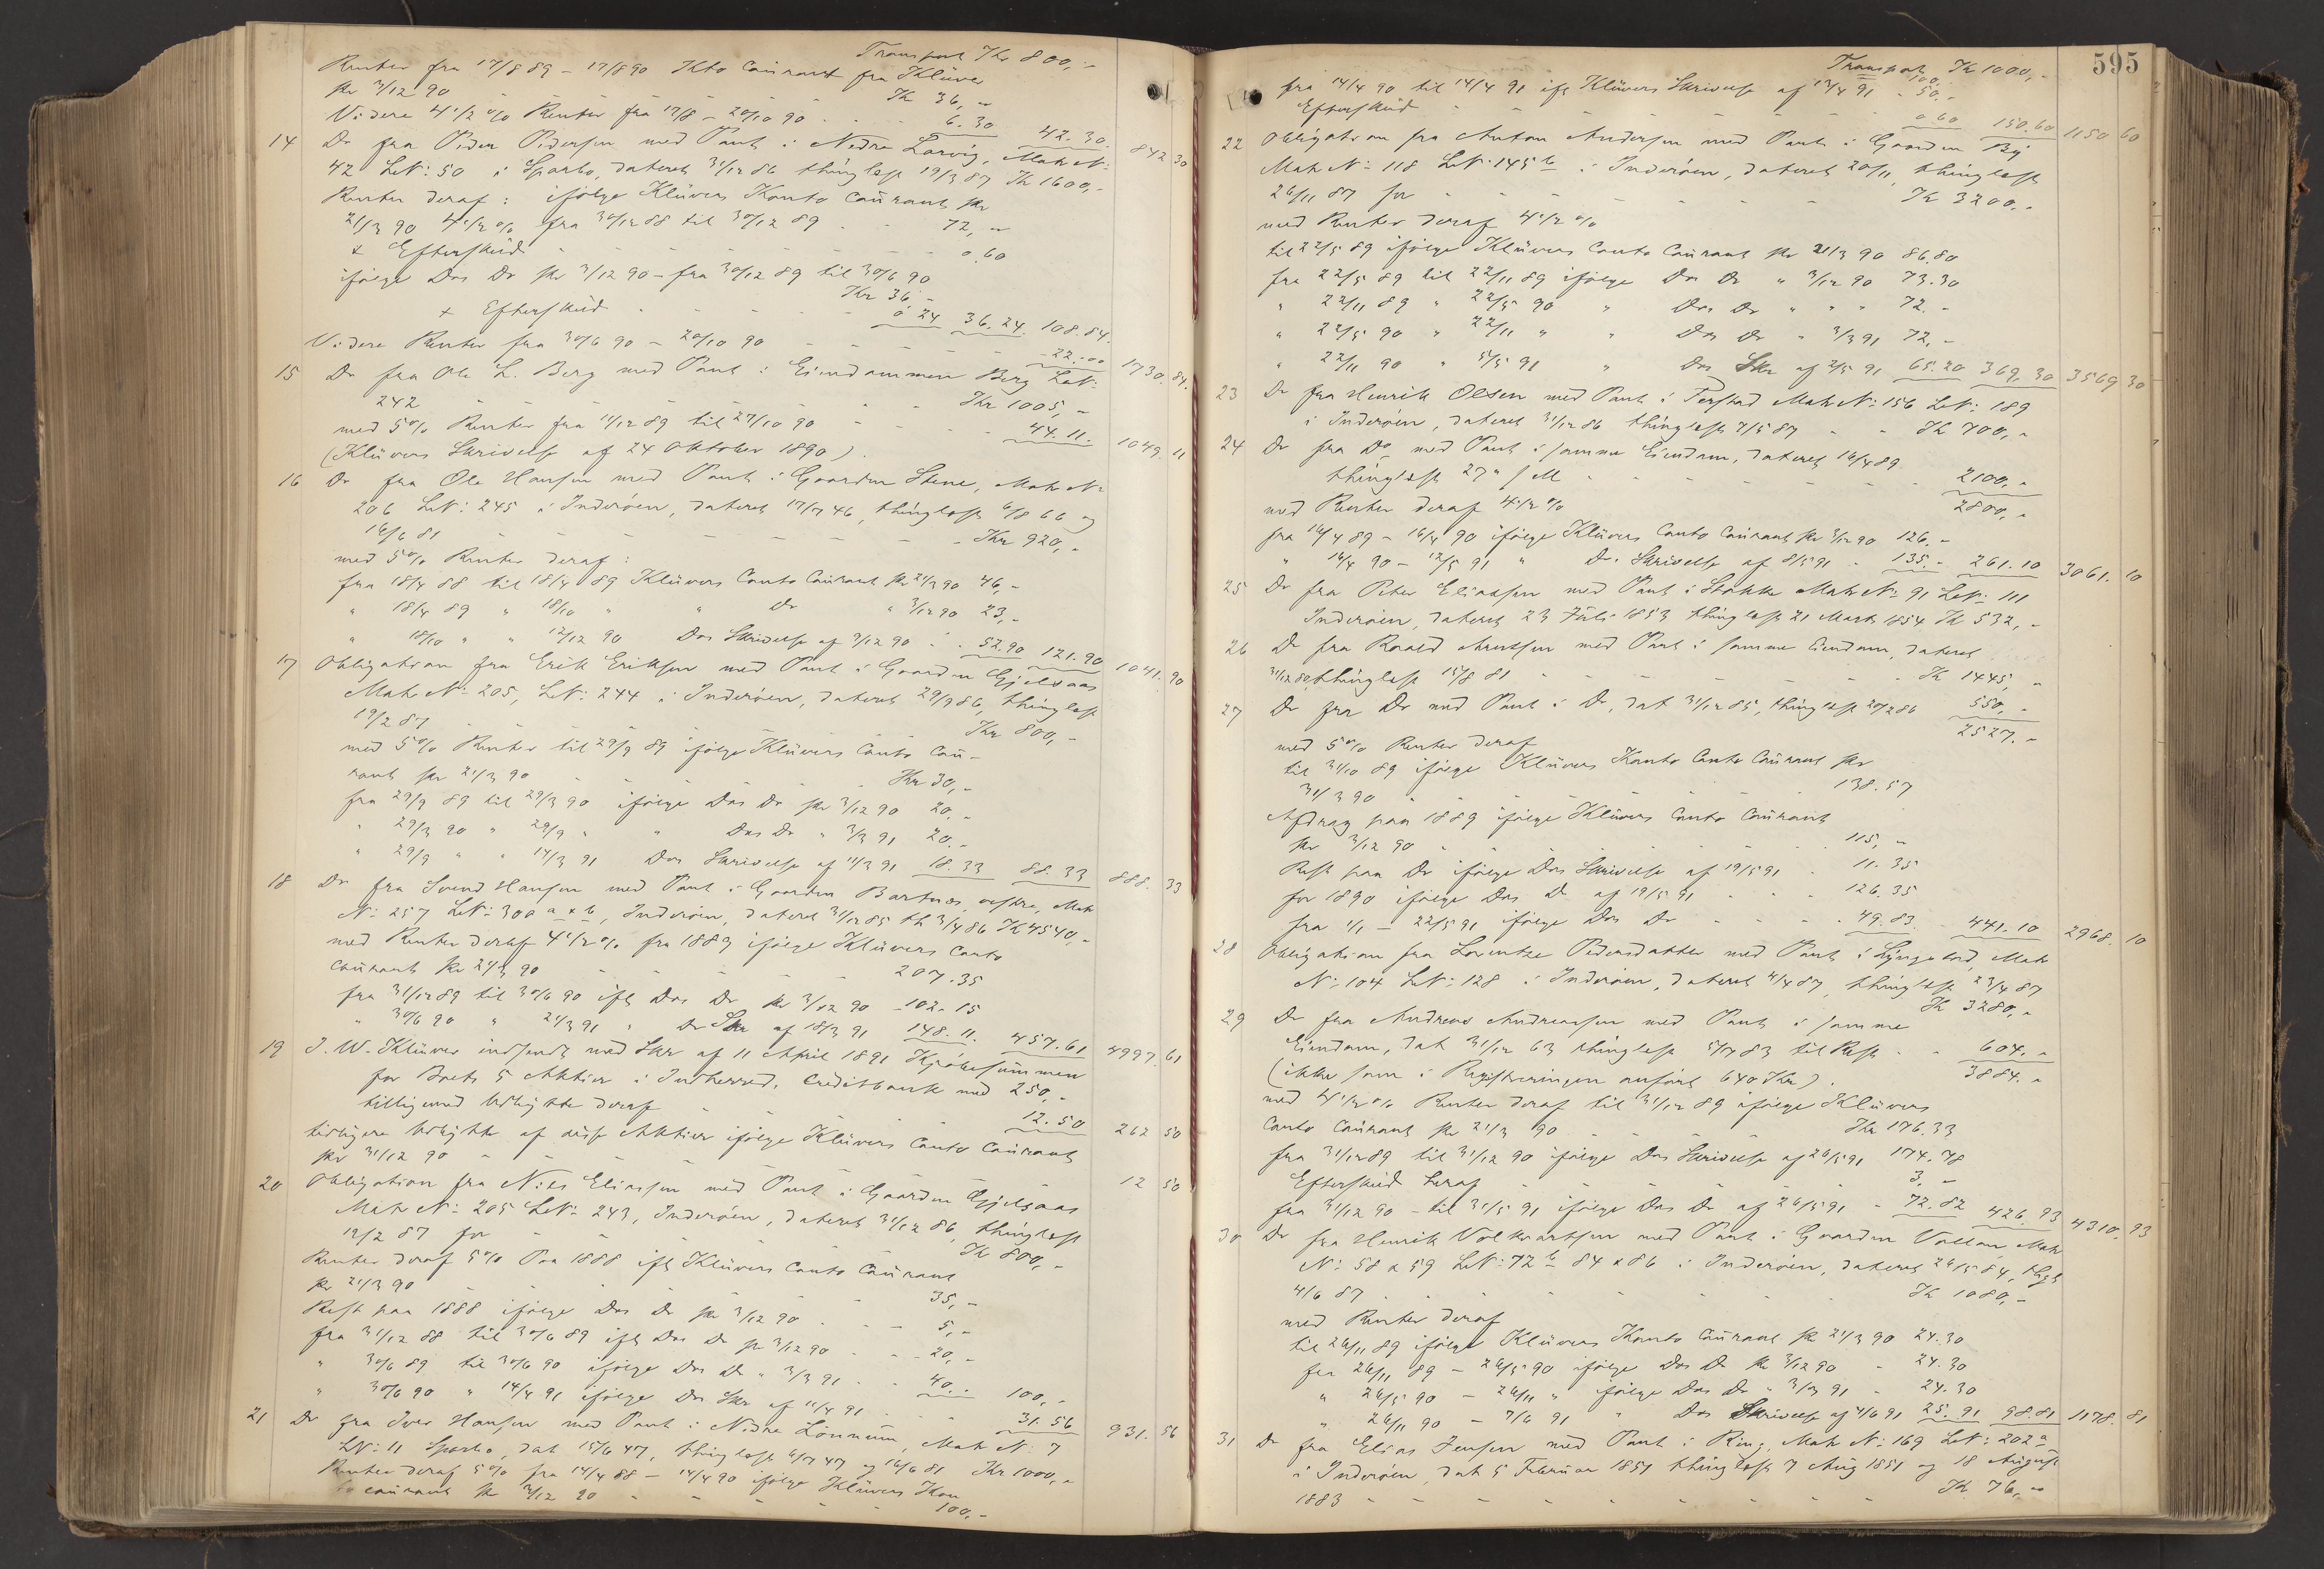 Transport Kr 800,-
Renter fra 17/8 89 - 17/8 90 Kto Courant fra Klüver
pr 3/12 90 Kr 36,-
Videre 4 1/2 % Renter fra 17/8 - 20/10 90 6.30 42.30. 842 30
14 Do fra Peder Pedersen med Pant i Nedre Larvig, Matr N:
42 LN: 50 i Sparbo, dateret 31/12 86 thinglæst 19/3 87 Kr 1600,-
Renter deraf: ifølge Klüvers Konto Courant pr
21/3 90 4 1/2 % fra 30/12 88 til 30/12 89 72,-
+ Efterskud 0.60
ifølge Das Do pr 3/12 90 - fra 30/12 89 til 30/6 90
Kr 36.-
+ Efterskud 0 24 36.24. 108.84.
Videre Renter fra 30/6 90 - 20/10 90 22.00 1730.84.
15 Do fra Ole L. Berg med Pant i Eiendommen Berg LN:
242 Kr 1005,-
med 5 % Renter fra 11/12 89 til 27/10 90 44.11. 1049. 11
(Klüvers Skrivelse af 24 Oktober 1890).
16 Do fra Ole Hansen med Pant i Gaarden Stene, Matr N:
206 LN: 245 i Inderøen, dateret 17/7 46, thinglæst 6/8 66 og
16/6 81 Kr 920,-
med 5 % Renter deraf:
fra 18/4 88 til 18/4 89 Klüvers Conto Courant pr 21/3 90 46,-
" 18/4 89 " 18/10 " " Do " 3/12 90 23,-
" 18/10 " " 12/12 90 Das Skrivelse af 9/12 90 52.90 121.90 1041. 90
17 Obligation fra Erik Eriksen med Pant i Gaarden Gjelsaas
Matr N: 205, LN: 244 i Inderøen, dateret 29/9 86, thinglæst
19/2 87 Kr 800,-
med 5 % Renter til 29/9 89 ifølge Klüvers Conto Cou-
rant pr 21/3 90 Kr 30,-
fra 29/9 89 til 29/3 90 ifølge Das Do pr 3/12 90 20.-
" 29/3 90 " 29/9 " " Das Do " 3/3 91 20.-
" 29/9 " " 14/3 91 Das Skrivelse af 11/3 91 18.33 88.33 888. 33
18 Do fra Svend Hansen med Pant i Gaarden Bartnes, vestre, Matr
N: 257 LN: 300 a & b, Inderøen, dateret 31/12 85 th 3/4 86 Kr 4540,-
med Renter deraf 4 1/2 % fra 1889 ifølge Klüvers Conto
Courant pr 21/3 90 207.35
fra 31/12 89 til 30/6 90 ifl Das Do pr 3/12 90 102.15
" 30/6 90 " 21/3 91 " Do Skr af 18/3 91 148.11. 457.61 4997.61
19 J. W. Klüver indsendt med Skr af 11 April 1891 Kjøbesummen
for Boets 5 Aktier i Indherred. Creditbank med 250,-
tilligemed Udbytte deraf 12.50 262 50
tidligere Udbytte af disse Aktier ifølge Klüvers Conto Courant
pr 31/12 90 12 50
20 Obligation fra Nils Eliassen med Pant i Gaarden Gjelsaas
Matr N: 205 LN: 243, Inderøen, dateret 31/12 86, thinglæst
19/2 87 for Kr 800,-
Renter deraf 5 % Paa 1888 ifl Klüvers Conto Courant
pr 21/3 90 35,-
Rest paa 1888 ifølge Das Do pr 3/12 90 5,-
fra 31/12 88 til 30/6 89 ifl Das Do pr 3/12 90 20,-
" 30/6 89 til 30/6 90 ifølge Das Do " 3/3 91 40.- 100,-
" 30/6 90 " 14/4 91 ifølge Das Skr af 11/4 91 31.56 931.56
21 Do fra Iver Hansen med Pant i Nedre Lønnum, Matr N: 7
LN: 11 Sparbo, dat 15/6 47, thinglæst 6/7 47 og 16/6 81 Kr 1000,-
Renter deraf 5 % fra 14/4 88 - 14/4 90 ifølge Klüvers Kon
to courant pr 3/12 90 100,-
595
Transport Kr 1000,-
100,-
fra 14/4 90 til 14/4 91 ifl Klüvers Skrivelse af 14/4 91 50,-
Efterskud 0 60 150.60 1150 60
22 Obligation fra Anton Andersen med Pant i Gaarden By
Matr N: 118 LN: 145 b i Inderøen, dateret 20/11, thinglæst
26/11 87 for Kr 3200,-
med Renter deraf 4 1/2 %
til 22/5 89 ifølge Klüvers Conto Courant pr 21/3 90 86.80
fra 22/5 89 til 22/11 89 ifølge Das Do " 3/12 90 73.30
" 22/11 89 " 22/5 90 " Das Do " " " 72.-
" 22/5 90 " 22/11 " " Das Do " 3/3 91 72,-
" 22/11 90 " 5/5 91 " Das Skr af 2/5 91 65.20 369.30 3569 30
23 Do fra Henrik Olsen med Pant i Ferstad Matr N: 156 LN: 189
i Inderøen, dateret 31/12 86 thinglæst 7/5 87 Kr 700,-
24 Do fra Do med Pant i samme Eiendom, dateret 16/4 89
thinglæst 27 s M 2100,-
med Renter deraf 4 1/2 % 2800,-
fra 16/4 89 - 16/4 90 ifølge Klüvers Conto Courant pr 3/12 90 126.-
" 16/4 90 - 12/5 91 " Ds Skrivelse af 8/5 91 135.- 261.10 3061. 10
25 Do fra Peter Eliassen med Pant i Stokke Matr N: 91 LN: 111
Inderøen, dateret 23 Juli 1853 thinglæst 21 Marts 1854 Kr 532,-
26 Do fra Roald Arentsen med Pant i samme Eiendom, dateret
31/12 80, thinglæst 15/8 81 Kr 1445,-
27 Do fra Do med Pant i Do, dat 31/12 85, thinglæst 20/2 86 550,-
med 5 % Renter deraf 2527.-
til 31/10 89 ifølge Klüvers Konto Conto Courant pr
31/3 90 138.57
Afdrag paa 1889 ifølge Klüvers Conto Courant
pr 3/12 90 115,-
Rest paa Do ifølge Das Skrivelse af 19/5 91 11.35
for 1890 ifølge Das Do af 19/5 91 126.35
fra 1/1 - 22/5 91 ifølge Das Do 49.83. 441.10 2968. 10
28 Obligation fra Lorentze Pedersdatter med Pant i Lyngstad, Matr
N: 104 LN: 128 i Inderøen, dateret 4/4 87, thinglæst 23/4 87
Kr 3280,-
29 Do fra Andreas Andreassen med Pant i samme
Eiendom, dat 31/12 63 thinglæst 5/7 83 til Rest 604.-
(ikke som i Registreringen anført 640 Kr). 3884.-
med 4 1/2 % Renter deraf til 31/12 89 ifølge Klüvers
Conto Courant pr 21/3 90 Kr 176.33
fra 31/12 89 til 31/12 90 ifølge Das Skrivelse af 26/5 91 174.78
Efterskud deraf 3,-
fra 31/12 90 - til 31/5 91 ifølge Das Do af 26/5 91 72.82 426.93 4310. 93
30 Do fra Henrik Volkvartsen med Pant i Gaarden Vollan, Matr
N: 58 & 59 LN: 72 b 84 & 86 i Inderøen, dateret 26/5 84, thgl
4/6 87 Kr 1080,-
med Renter deraf
til 26/11 89 ifølge Klüvers Konto Courant pr 21/3 90 24.30
fra 26/11 89 - 26/5 90 ifølge Das Do pr 3/12 90 24.30
" 26/5 90 - 26/11 " ifølge Das Do " 3/3 91 24.30
" 26/11 90 - 7/6 91 " Das Skrivelse af 4/6 91 25.91 98.81 1178. 81
31 Do fra Elias Jensen med Pant i Ring, Matr N: 169 LN: 202 a
i Inderøen, dat 5 Februar 1851 thinglæst 7 Aug 1851 og 18 August
1883 Kr 76,-